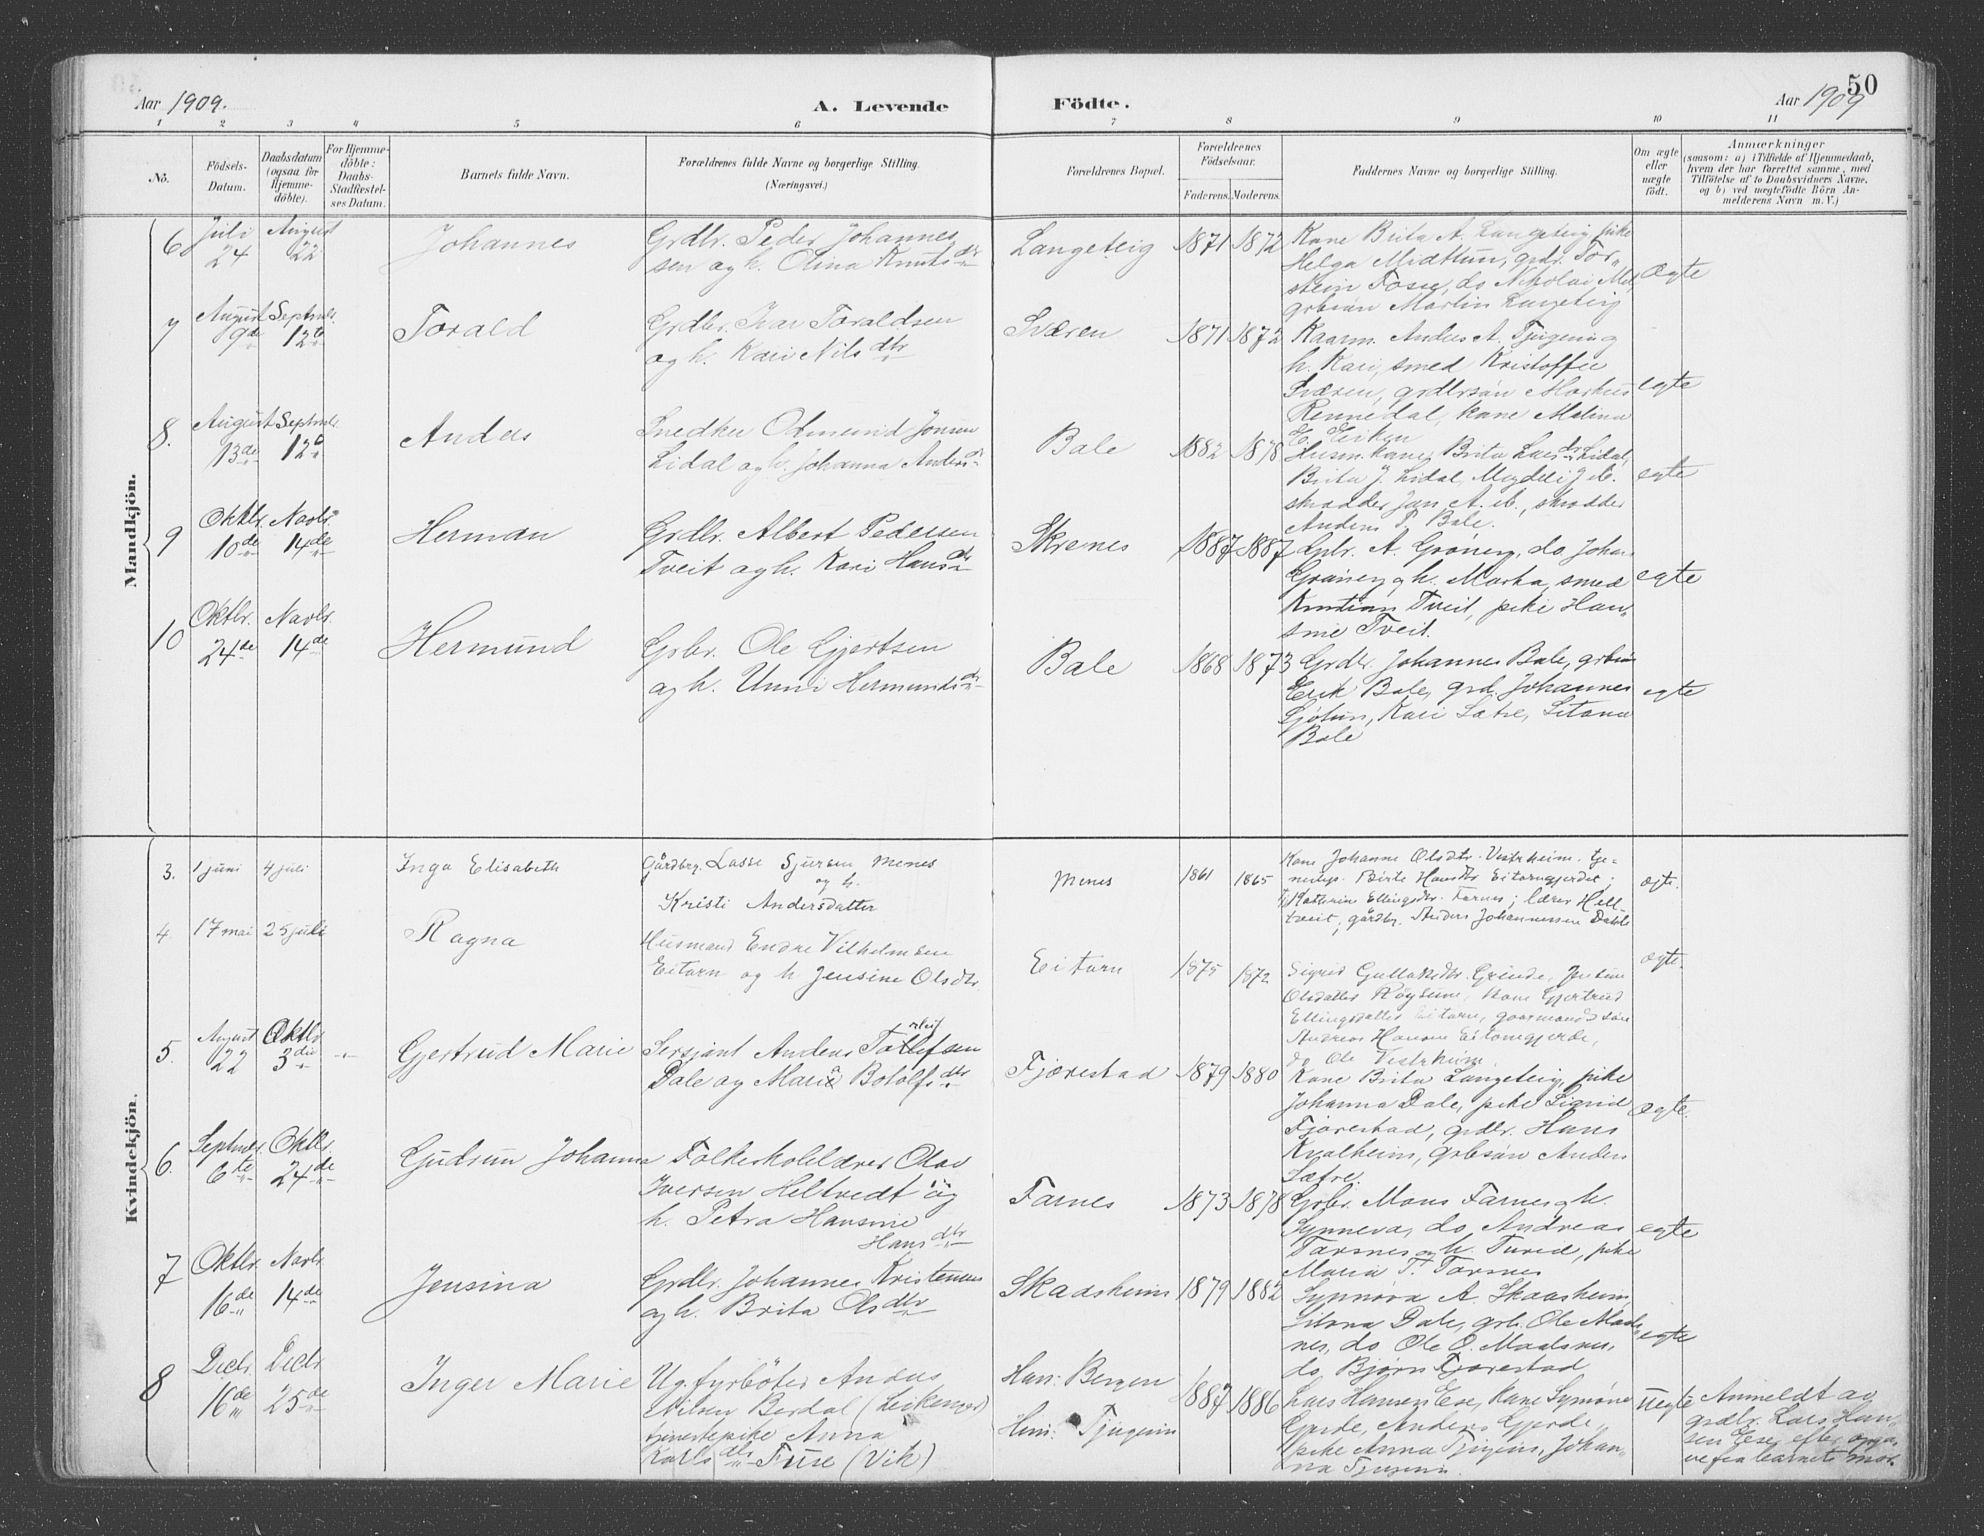 50
Aar 1909.
A. Levende
Födte.
Aar 1909
1 2 3 4 5 6 7 8 9 10 11
No.
Födsels-
Datum.
Daabsdatum
(ogsaa for
Hjemme-
döbte).
For Hjemme-
döbte:
Daabs-
Stadfæstel-
ses Datum.
Barnets fulde Navn.
Forældrenes fulde Navne og borgerlige Stilling.
(Næringsvei.)
Forældrenes Bopæl.
Forældrenes
Födselsaar.
Faderens.
Moderens.
Faddernes Navne og borgerlige Stilling.
Om ægte
eller
uægte
födt.
Anmærkninger
(saasom: a) i Tilfælde af Hjemmedaab,
hvem der har forrettet samme, med
Tilföielse af to Daabsvidners Navne,
og b) ved uægtefödte Börn An-
melderens Navn m. V.)
Mandkjön.
6 Juli 24 August 22
Johannes
Grdbr. Peder Johannes
sen og h. Olina Knutsdtr
Langeteig
1871 1872
Kone Brita A. Langeteig, pike
Helga Midttun, grdr. Tor-
stein Fosse, do Nikolai
grbsøn Martin Langeteig
Ægte
7 August 9de Septmbr. 12te
Torald
Grdbr. Ivar Toraldsen
og h. Kari Nilsdtr
Sværen
1871 1872
Kaarm. Anders A. Tjugum og
h. Kari, smed Kristoffer
Sværen, grdbrsøn Markus
Rennedal, kone Malina
E. Eriksen
egte
8. August 13de Septmbr. 12te
Anders
Snedker Odmund Jonsen
Lidal og h. Johanna Andersdtr
Bale
1882 1878
Husm.kone Brita Larsdtr Lidal,
Brita J. Lidal, Magdeli J. ib.
skrædder Jan A. ib., skrædder
Anders P. Bale.
egte
9 Oktbr. 10de Novbr. 14de
Herman
Grdbr. Albert Pedersen
Tveit og h. Kari Hansdtr
Skrenes
1887 1887
Gbr. A. Grøneng, do Johan
Grøneng og h. Marta, smed
Kristian Tveit, pike Han-
sine Tveit.
egte
10 Oktbr. 24de Novbr. 14de
Hermund
Grbr. Ole Gjertsen
og h. Unni Hermundsdtr
Bale
1868 1873
Grdbr. Johannes Bale, grbsøn
Erik Bale, grd. Johannes
Kari Sætre,
Bale
egte
Kvindekjön.
3. 1 juni 4 juli
Inga Elisabeth
Gårdbrg. Lasse Sjursen Menes
og h.
Kristi Andersdatter
Menes
1861 1865
Kone Johanne Olsdtr. Vestrheim. tje-
nestep. Birte Hansdtr Eitorngjerdet;
Kathrine Ellingsdtr. Farnes; lærer Helt-
tveit; gårdbr. Anders Johannessen Dahle
ægte.
4. 17 mai 25 juli
Ragna
Husmand Endre Vilhelmsen
Eitorn og h Jensine Olsdtr.
Eitorn
1875 1872
Sigrid Gullaksdtr. Grinde, Jensine
Olsdatter Røysum, kone Gjertrud
Ellingsdatter Eitorn, gaarmandssøn
Andreas Hansen Eitorngjerde,
do Ole Vestrheim.
ægte.
5. August 22 Oktbr 3die
Gjertrud Marie
Sersjant Anders
Dale og Maria Botolfsdtr
Fjærestad
1879 1880
Kone Brita Langeteig, pike
Johanna Dale, pike Sigrid
Fjærestad, grdbr. Hans
Kvalheim, grbsøn Anders
Sætre.
Ægte.
6. Septmbr. 6te Oktbr. 24de
Gudrun Johanne
Folkeskolelærer Olav
Iversen Heltvedt og
h. Petra Hansine
Hansdtr
Farnes
1873 1878
Grbr. Mons Farnes og h.
Synneva, do Andreas
Farnes og h. Tured, pike
Maria T. Farnes
egte
7 Oktbr. 16de Novbr. 14de
Jensina
Grdbr. Johannes Kristensen
og h. Brita Olsdtr
Skaasheim
1879 1882
Synnøva A. Skaasheim
Dale, grb. Ole Mads-
nes, do Ole O. Madsnes,
do Bjørn Fjærestad
egte
8 Decbr. 16de Decbr. 25de
Inger Marie
Ug. fyrbøter Anders
Nilsen Berdal (Leikanger)
tjenestepike Anna
Karlsdtr Fuse (Vik)
Han: Bergen
Hun: Tjugum
1887 1886
Lars Hansen Ese, kone Synnøve
Gjerde, Anders Gjerde,
pike Anna Tjugum, Johan-
na Tjugum.
uegte
Anmeldt av
grdbr. Lars Han-
sen Ese, efter opga-
ve fra barnets mor.